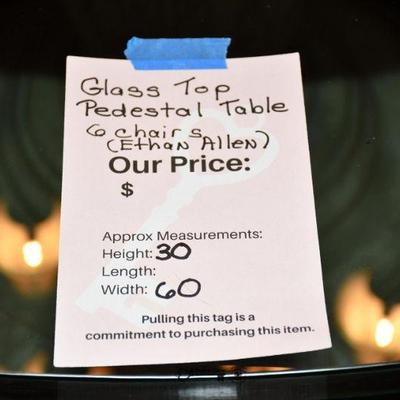 Glass Top
Pedestal Table
6 chairs
(Ethan Allen)
Our Price:
$
Approx Measurements:
Height: 30
Length:
Width: 60
Pulling this tag is a
commitment to purchasing this item.